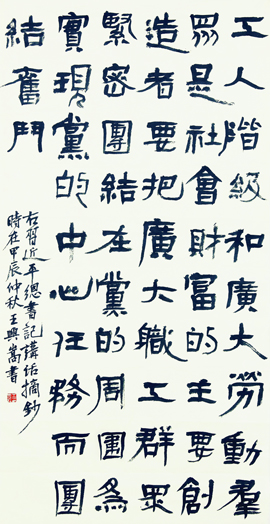 工人階級和廣大勞動羣
眾是社會財富的主要創
造者要把廣大職工群眾
緊密團結在黨的周圍為
實現黨的中心任務而團
結奮鬥
右習近平總書記講話摘鈔
時在甲辰仲秋王興嵩書